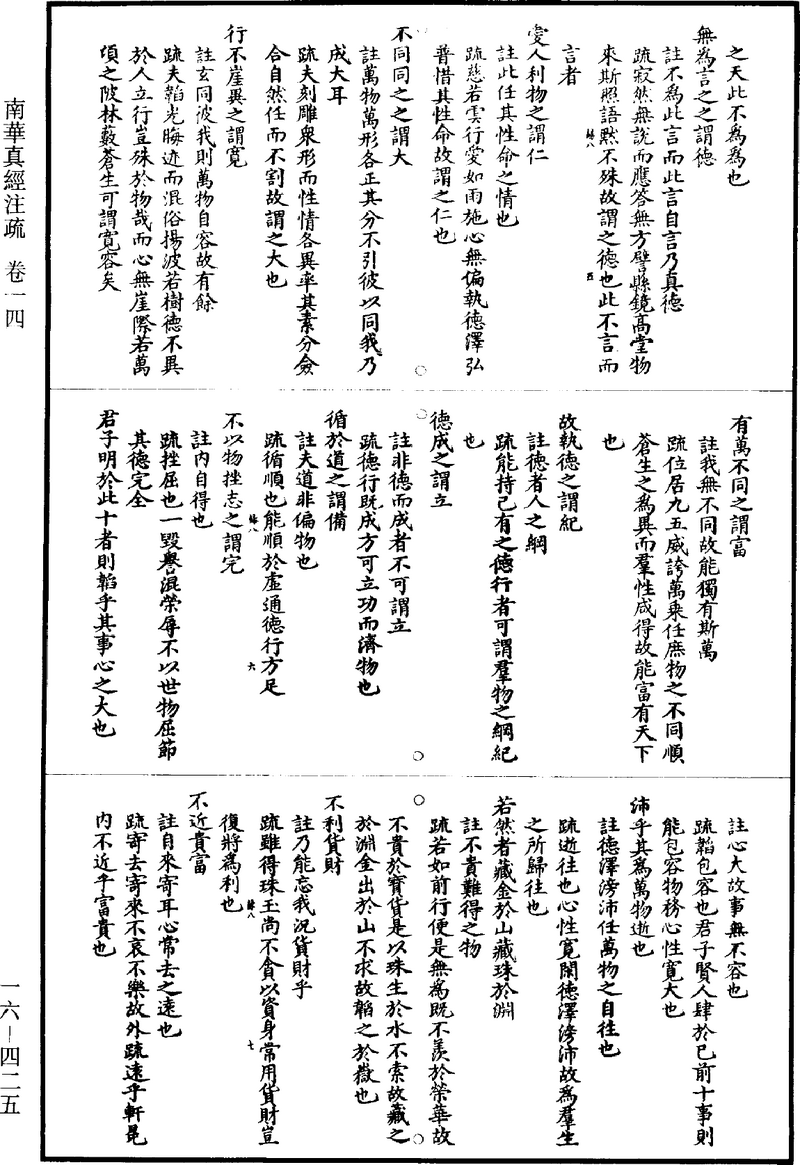 南華真經注疏　卷一四
一六—四二五
之天此不為為也
無為言之之謂德
註不為此言而此言自言乃真德
疏寂然無說而應答無方譬縣鏡高堂物
來斯照語默不殊故謂之德也此不言而
言者
愛人利物之謂仁
註此任其性命之情也
疏慈若雲行愛如雨施心無偏執德澤弘
普惜其性命故謂之仁也
不同同之之謂大
註萬物萬形各正其分不引彼以同我乃
成大耳
疏夫刻雕眾形而性情各異率其素分僉
合自然任而不割故謂之大也
行不崖異之謂寬
註玄同彼我則萬物自容故有餘
疏夫韜光晦迹而混俗揚波若樹德不異
於人立行豈殊於物哉而心無崖際若萬
頃之陂林藪蒼生可謂寬容矣
有萬不同之謂富
註我無不同故能獨有斯萬
疏位居九五威誇萬乘任庶物之不同順
蒼生之為異而羣性咸得故能富有天下
也
故執德之謂紀
註德者人之綱
疏能持已有之德行者可謂羣物之綱紀
也
德成之謂立
註非德而成者不可謂立
疏德行既成方可立功而濟物也
循於道之謂備
註夫道非偏物也
疏循順也能順於虛通德行方足
六
不以物挫志之謂完
註內自得也
疏挫屈也一毀譽混榮辱不以世物屈節
其德完全
君子明於此十者則韜乎其事心之大也
註心大故事無不容也
疏韜包容也君子賢人肆於已前十事則
能包容物務心性寬大也
沛乎其為萬物逝也
註德澤滂沛任萬物之自往也
疏逝往也心性寬閑德澤滂沛故為羣生
之所歸往也
若然者藏金於山藏珠於淵
註不貴難得之物
疏若如前行便是無為既不羨於榮華故
不貴於寶貨是以珠生於水不索故藏之
於淵金出於山不求故韜之於嶽也
不利貨財
註乃能忘我況貨財乎
疏雖得珠玉尚不貪以資身常用貨財豈
七
復將為利也
不近貴富
註自來寄耳心常去之遠也
疏寄去寄來不哀不樂故外疏遠乎軒冕
內不近乎富貴也